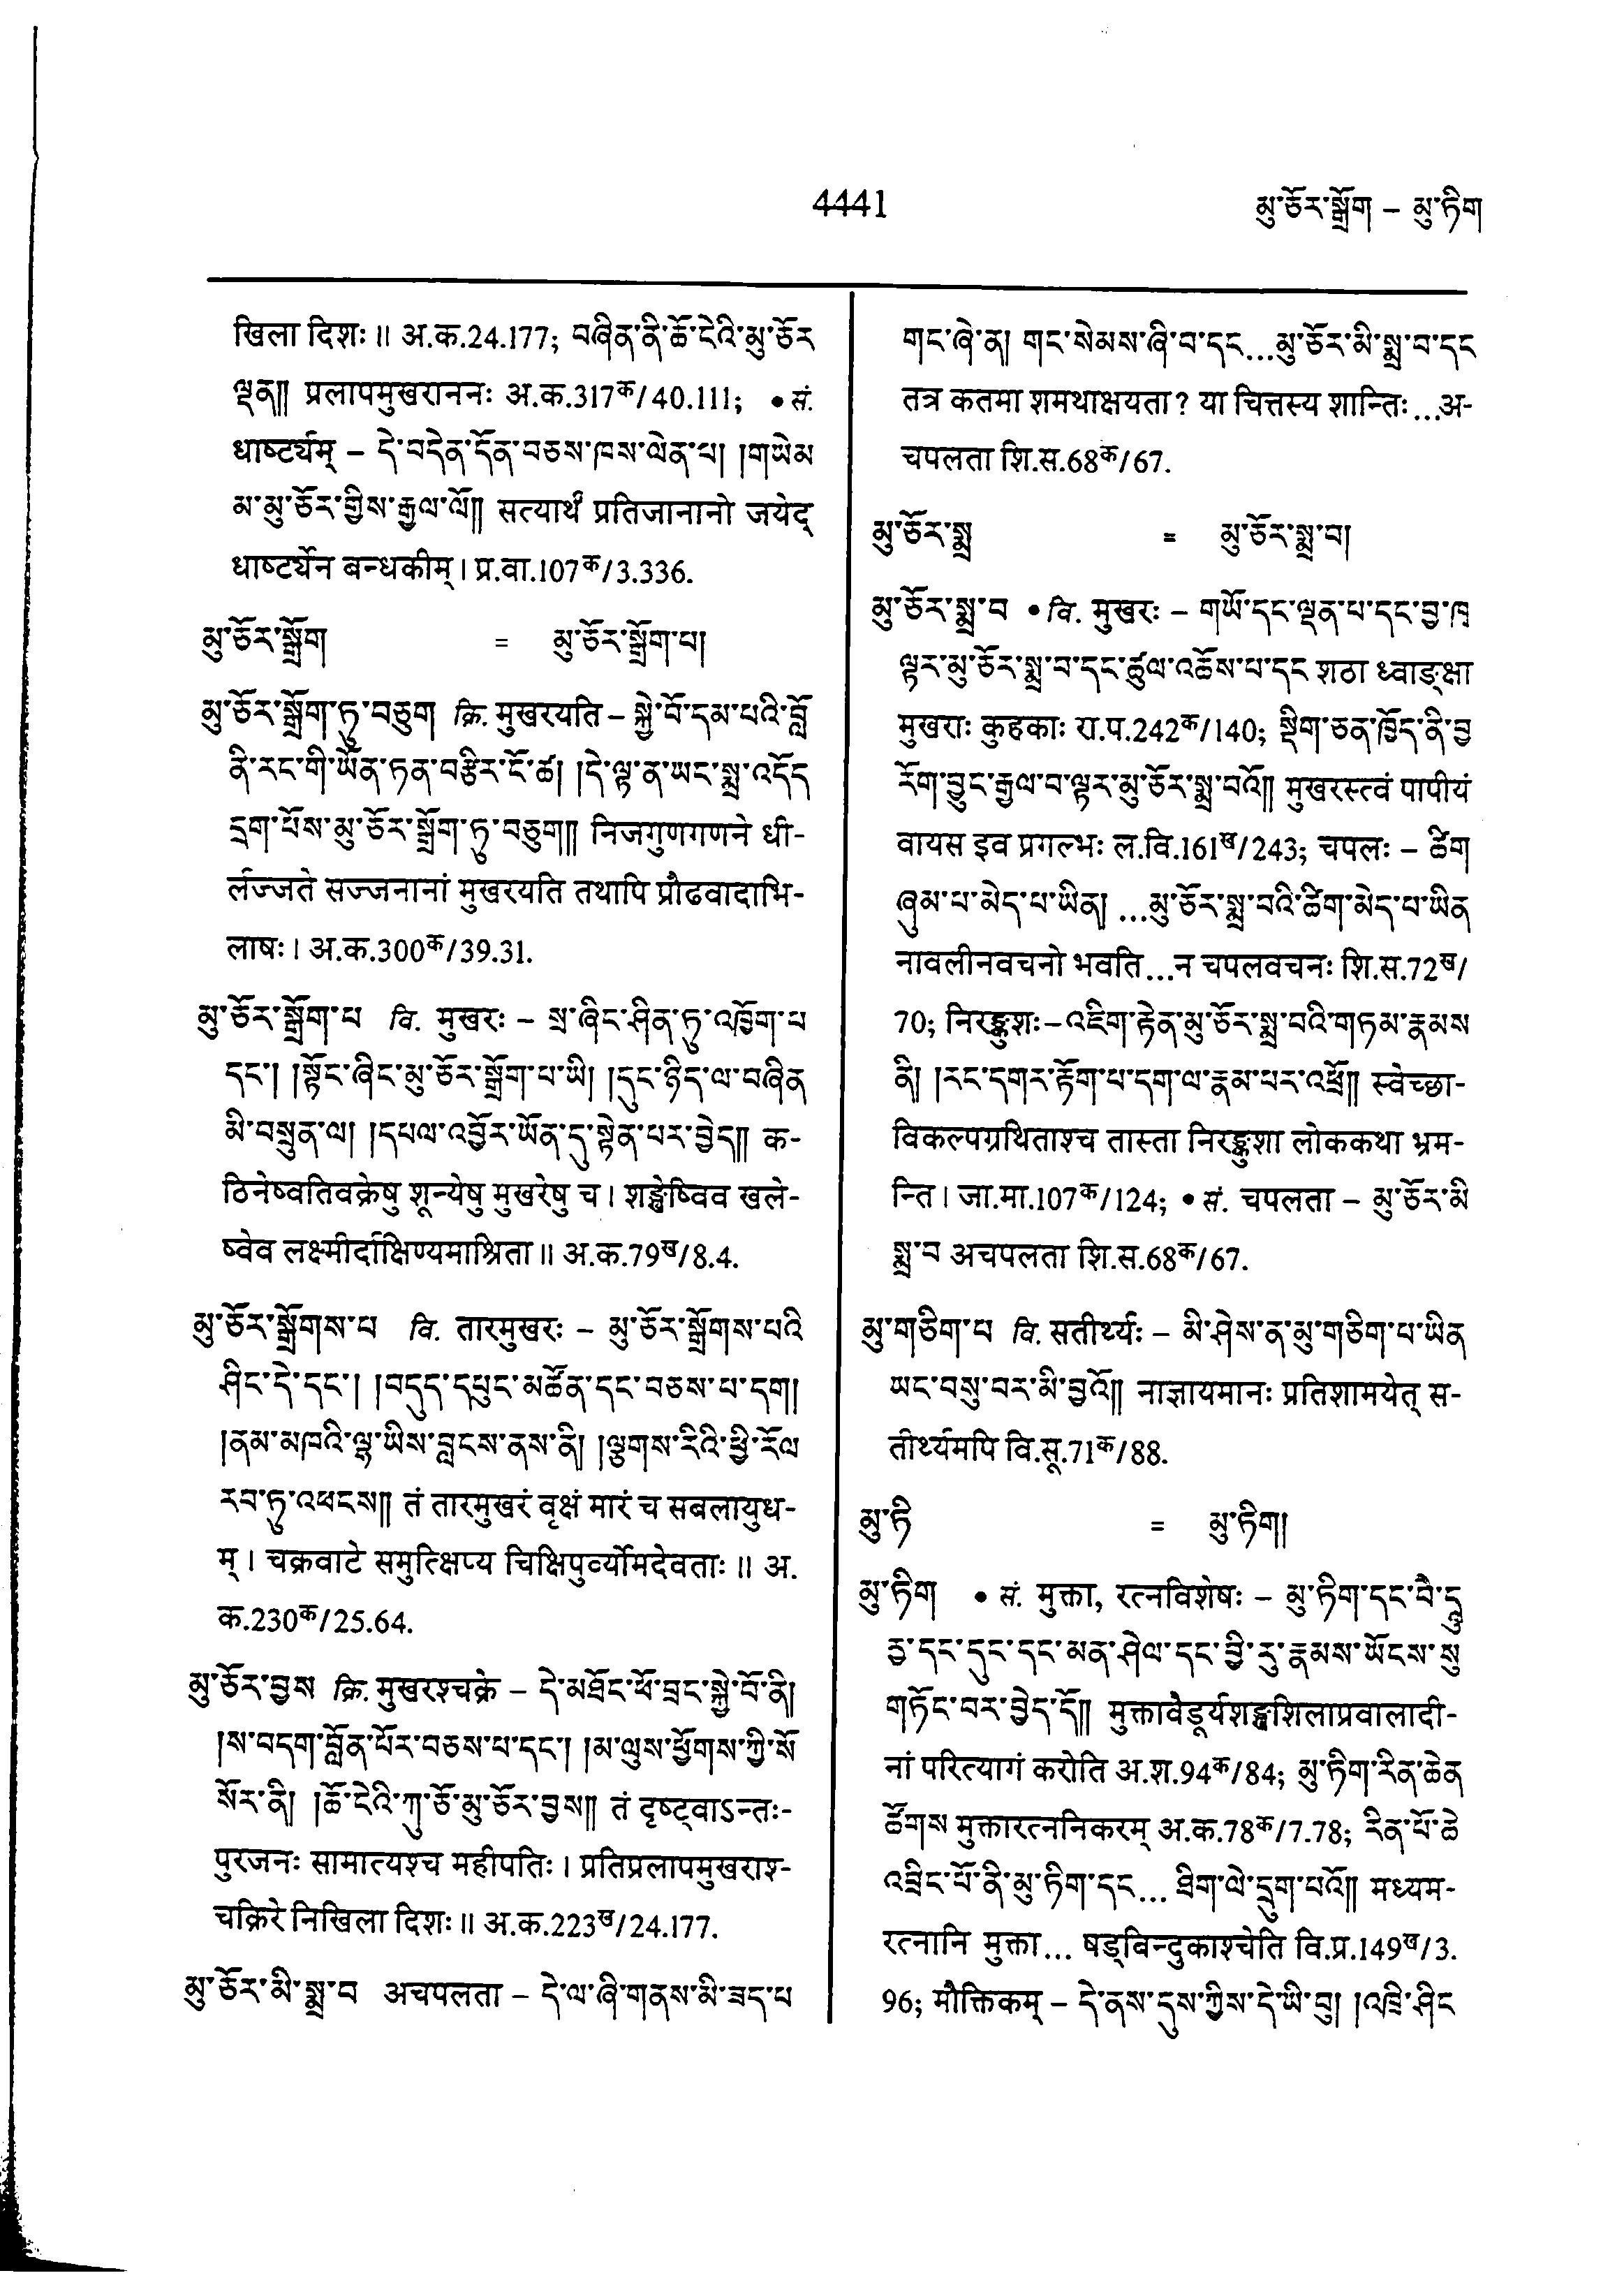 4441
མུ་ཅོར་སྒྲོག – མུ་ཏིག
खिला दिशः ॥ अ.क.24.177; བཞིན་ནི་ཆོ་ངེའི་མུ་ཅོར
ལྡན༎ प्रलापमुखराननः अ.क.317क/40.111; • सं.
धार्ष्ट्यम् – དེ་བདེན་དོན་བཅས་ཁས་ལེན་པ། །གཡེམ
མ་མུ་ཅོར་གྱིས་རྒྱལ་ལོ༎ सत्यार्थं प्रतिजानानो जयेद्
धार्ष्ट्येन बन्धकीम् । प्र.वा.107क/3.336.
མུ་ཅོར་སྒྲོག = མུ་ཅོར་སྒྲོག་པ།
མུ་ཅོར་སྒྲོག་ཏུ་བཅུག क्रि. मुखरयति – སྐྱེ་བོ་དམ་པའི་བློ
ནི་རང་གི་ཡོན་ཏན་བརྩིར་ངོ་ཚ། །དེ་ལྟ་ན་ཡང་སྨྲ་འདོད
དྲག་པོས་མུ་ཅོར་སྒྲོག་ཏུ་བཅུག༎ निजगुणगणने धी-
र्लज्जते सज्जनानां मुखरयति तथापि प्रौढवादाभि-
लाषः । अ.क.300क/39.31.
མུ་ཅོར་སྒྲོག་པ वि. मुखरः – སྲ་ཞིང་ཤིན་ཏུ་འཁྱོག་པ
དང་། །སྟོང་ཞིང་མུ་ཅོར་སྒྲོག་པ་ཡི། །དུང་ཉིད་ལ་བཞིན
མི་བསྲུན་ལ། །དཔལ་འབྱོར་ཡོན་དུ་སྟེན་པར་བྱེད༎ क-
ठिनेष्वतिवक्रेषु शून्येषु मुखरेषु च । शङ्खेष्विव खले-
ष्वेव लक्ष्मीर्दाक्षिण्यमाश्रिता ॥ अ.क.79ख/8.4.
མུ་ཅོར་སྒྲོགས་པ वि. तारमुखरः – མུ་ཅོར་སྒྲོགས་པའི
ཤིང་དེ་དང་། །བདུད་དཔུང་མཚོན་དང་བཅས་པ་དག།
།ནམ་མཁའི་ལྷ་ཡིས་བླངས་ནས་ནི། །ལྕགས་རིའི་ཕྱི་རོལ
རབ་ཏུ་འཕངས༎ तं तारमुखरं वृक्षं मारं च सबलायुध-
म् । चक्रवाटे समुत्क्षिप्य चिक्षिपुर्व्योमदेवताः ॥ अ.
क.230क/25.64.
མུ་ཅོར་བྱས क्रि. मुखरश्चक्रे – དེ་མཐོང་ཕོ་བྲང་སྐྱེ་བོ་ནི།
།ས་བདག་བློན་པོར་བཅས་པ་དང་། །མ་ལུས་ཕྱོགས་ཀྱི་སོ
སོར་ནི། །ཆོ་ངེའི་ཀུ་ཅོ་མུ་ཅོར་བྱས༎ तं दृष्ट्वाऽन्तः-
पुरजनः सामात्यश्च महीपतिः । प्रतिप्रलापमुखराश्-
चक्रिरे निखिला दिशः ॥ अ.क.223ख/24.177.
མུ་ཅོར་མི་སྨྲ་བ अचपलता – དེ་ལ་ཞི་གནས་མི་ཟད་པ
གང་ཞེ་ན། གང་སེམས་ཞི་བ་དང...མུ་ཅོར་མི་སྨྲ་བ་དང
तत्र कतमा शमथाक्षयता? या चित्तस्य शान्तिः...अ-
चपलता शि.स.68क/67.
མུ་ཅོར་སྨྲ = མུ་ཅོར་སྨྲ་བ།
མུ་ཅོར་སྨྲ་བ • वि. मुखरः – གཡོ་དང་ལྡན་པ་དང་བྱ་ཁྭ
ལྟར་མུ་ཅོར་སྨྲ་བ་དང་ཚུལ་འཆོས་པ་དང शठा ध्वाङ्क्षा
मुखराः कुहकाः रा.प.242क/140; སྡིག་ཅན་ཁྱོད་ནི་བྱ
རོག་བྱུང་རྒྱལ་བ་ལྟར་མུ་ཅོར་སྨྲ་བའོ༎ मुखरस्त्वं पापीयं
वायस इव प्रगल्भः ल.वि.161ख/243; चपलः – ཚིག
ཞུམ་པ་མེད་པ་ཡིན། ...མུ་ཅོར་སྨྲ་བའི་ཚིག་མེད་པ་ཡིན
नावलीनवचनो भवति...न चपलवचनः शि.स.72ख/
70; निरङ्कुशः – འཇིག་རྟེན་མུ་ཅོར་སྨྲ་བའི་གཏམ་རྣམས
ནི། །རང་དགར་རྟོག་པ་དག་ལ་རྣམ་པར་འཕྲོ༎ स्वेच्छा-
विकल्पग्रथिताश्च तास्ता निरङ्कुशा लोककथा भ्रम-
न्ति । जा.मा.107क/124; • सं. चपलता – མུ་ཅོར་མི
སྨྲ་བ अचपलता शि.स.68क/67.
མུ་གཅིག་པ वि. सतीर्थ्यः – མི་ཤེས་ན་མུ་གཅིག་པ་ཡིན
ཡང་བསུ་བར་མི་བྱའོ༎ नाज्ञायमानः प्रतिशामयेत् स-
तीर्थ्यमपि वि.सू.71क/88.
མུ་ཏི = མུ་ཏིག།
མུ་ཏིག • सं. मुक्ता, रत्नविशेषः – མུ་ཏིག་དང་བཻ་ཌཱུ
རྱ་དང་དུང་དང་མན་ཤེལ་དང་བྱི་རུ་རྣམས་ཡོངས་སུ
གཏོང་བར་བྱེད་དོ༎ मुक्तावैडूर्यशङ्खशिलाप्रवालादी-
नां परित्यागं करोति अ.श.94क/84; མུ་ཏིག་རིན་ཆེན
ཚོགས मुक्तारत्ननिकरम् अ.क.78क/7.78; རིན་པོ་ཆེ
འབྲིང་པོ་ནི་མུ་ཏིག་དང... ཐིག་ལེ་དྲུག་པའོ༎ मध्यम-
रत्नानि मुक्ता... षड्बिन्दुकाश्चेति वि.प्र.149ख/3.
96; मौक्तिकम् – དེ་ནས་དུས་ཀྱིས་དེ་ཡི་བུ། །འཁྲི་ཤིང